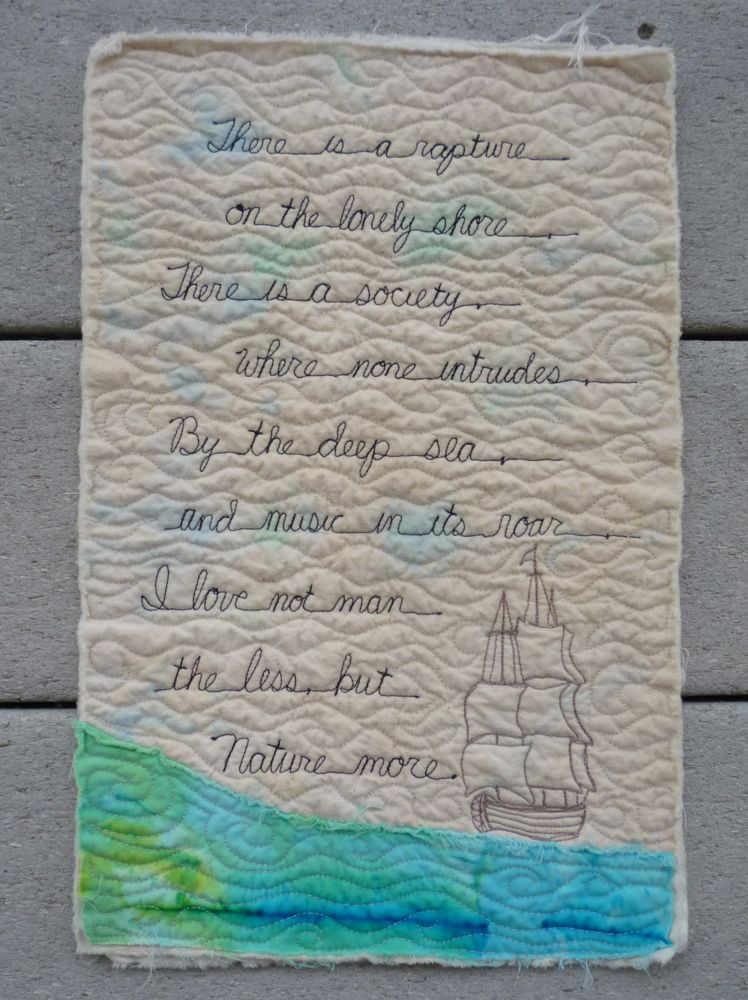 There is a rapture
on the lonely shore.
There is a society,
where none intrudes,
By the deep sea,
and music in its roar.
I love not man
the less, but
Nature more.